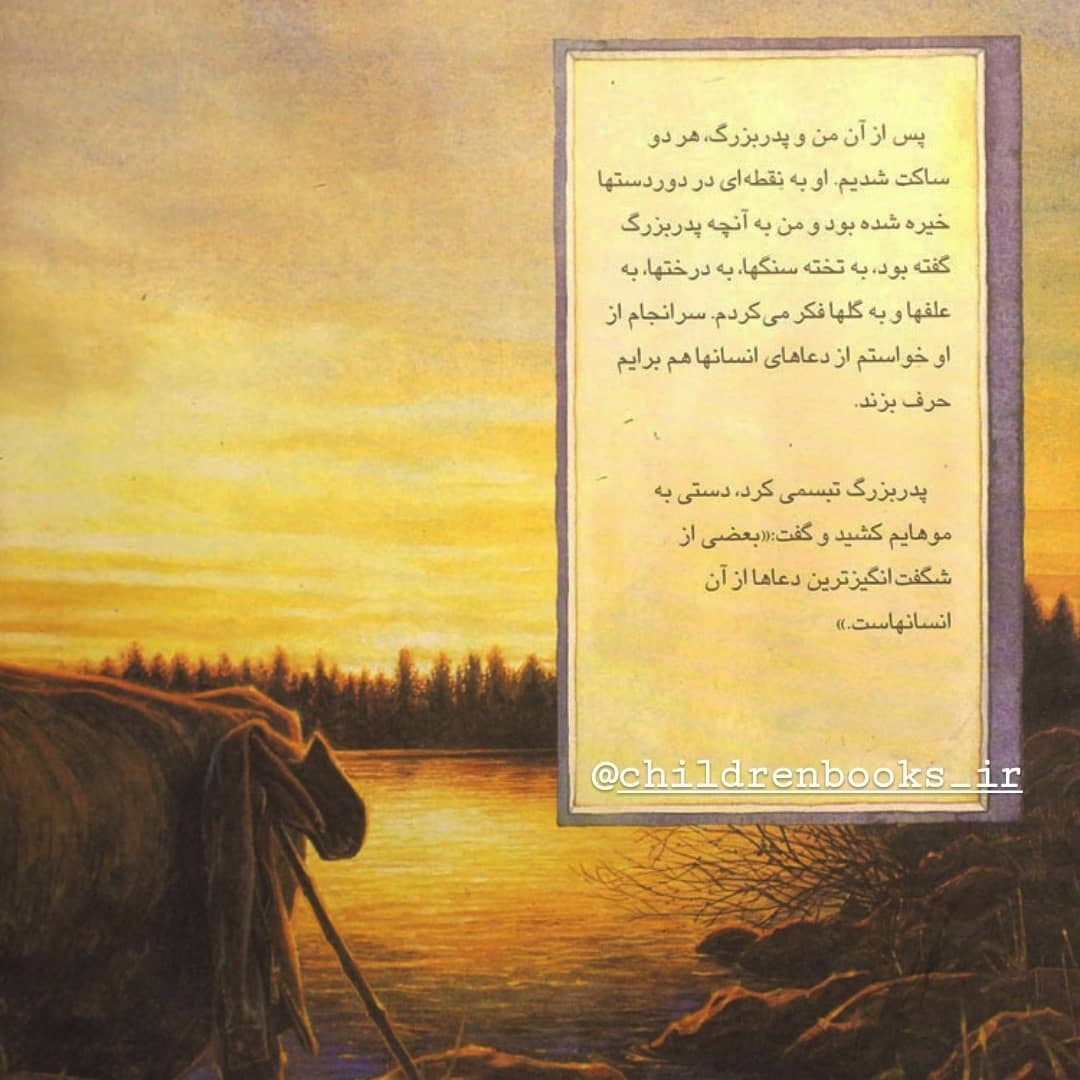 پس از آن من و پدربزرگ، هر دو
ساکت شدیم. او به نقطه‌ای در دوردستها
خیره شده بود و من به آنچه پدربزرگ
گفته بود، به تخته سنگها، به درختها، به
علفها و به گلها فکر می‌کردم. سرانجام از
او خواستم از دعاهای انسانها هم برایم
حرف بزند.
پدربزرگ تبسمی کرد، دستی به
موهایم کشید و گفت:«بعضی از
شگفت‌انگیزترین دعاها از آن
انسانهاست.»
@childrenbooks_ir